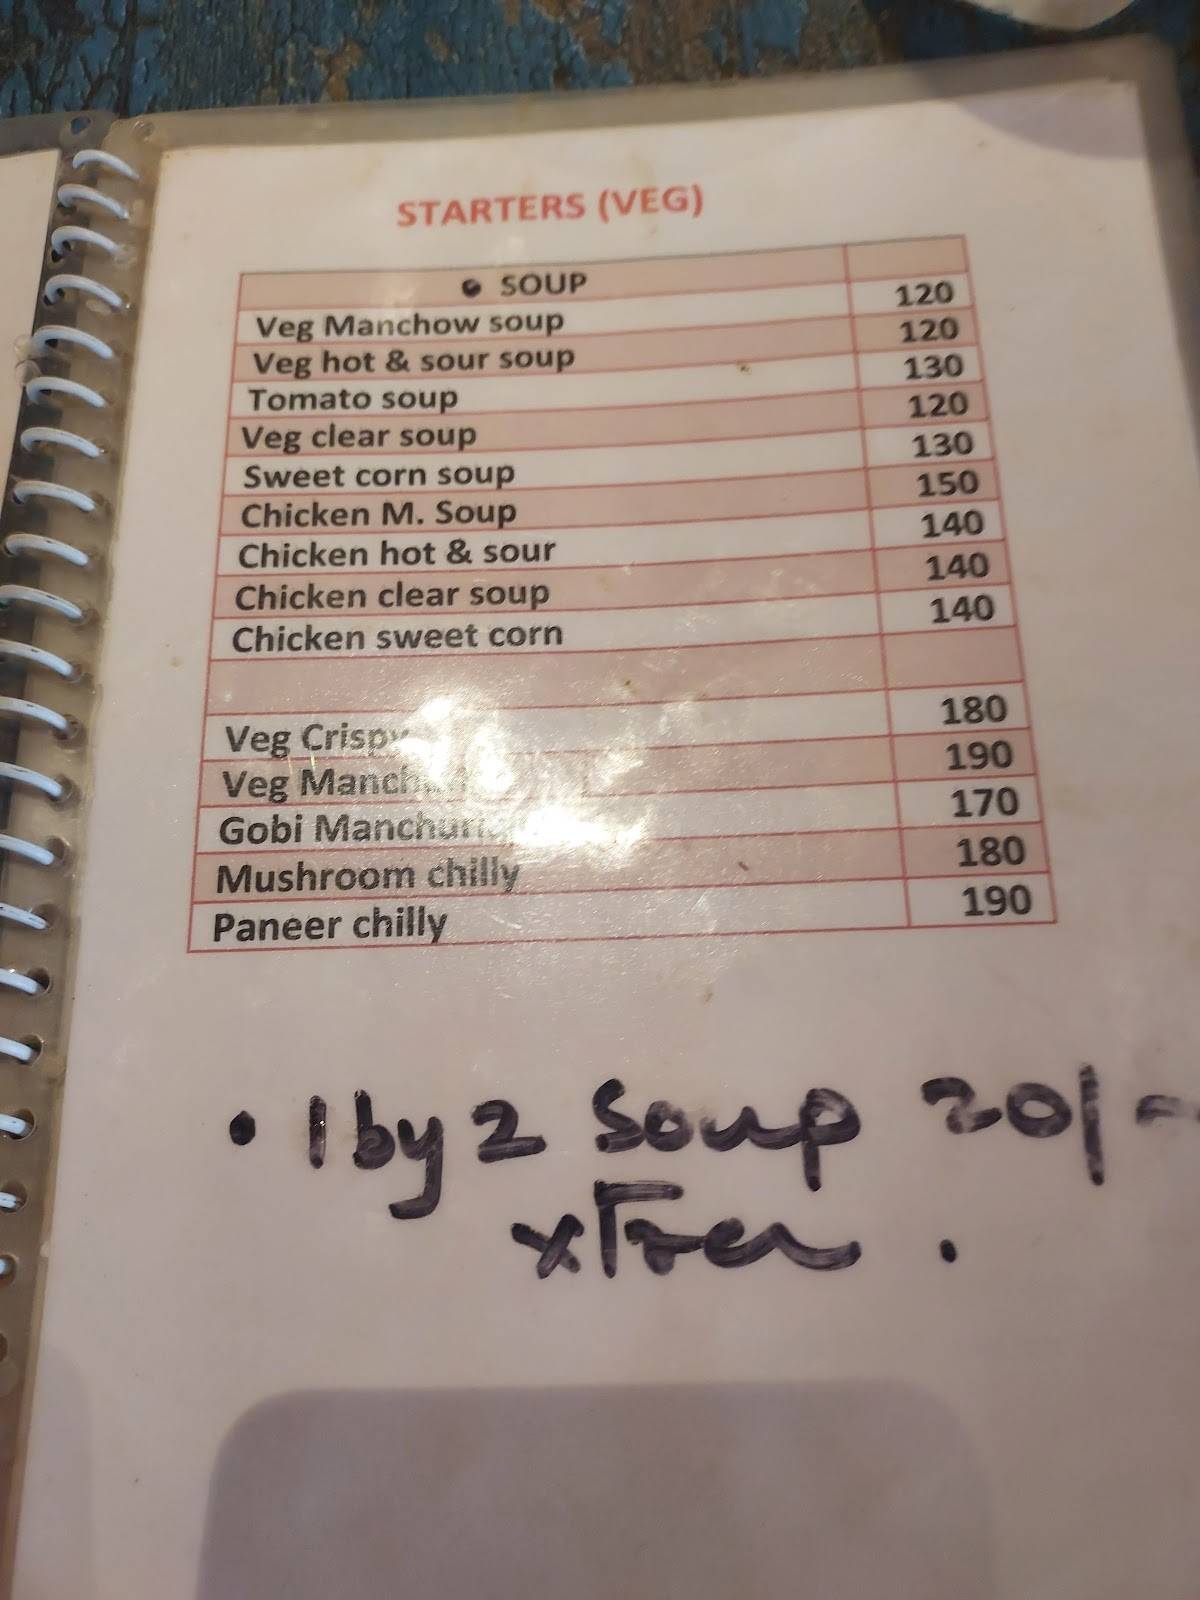 STARTERS (VEG)
● SOUP
Veg Manchow soup 120
Veg hot & sour soup 120
Tomato soup 130
Veg clear soup 120
Sweet corn soup 130
Chicken M. Soup 150
Chicken hot & sour 140
Chicken clear soup 140
Chicken sweet corn 140
Veg Crispy 180
Veg 190
Gobi 170
Mushroom chilly 180
Paneer chilly 190
• 1 by 2 Soup 20/-